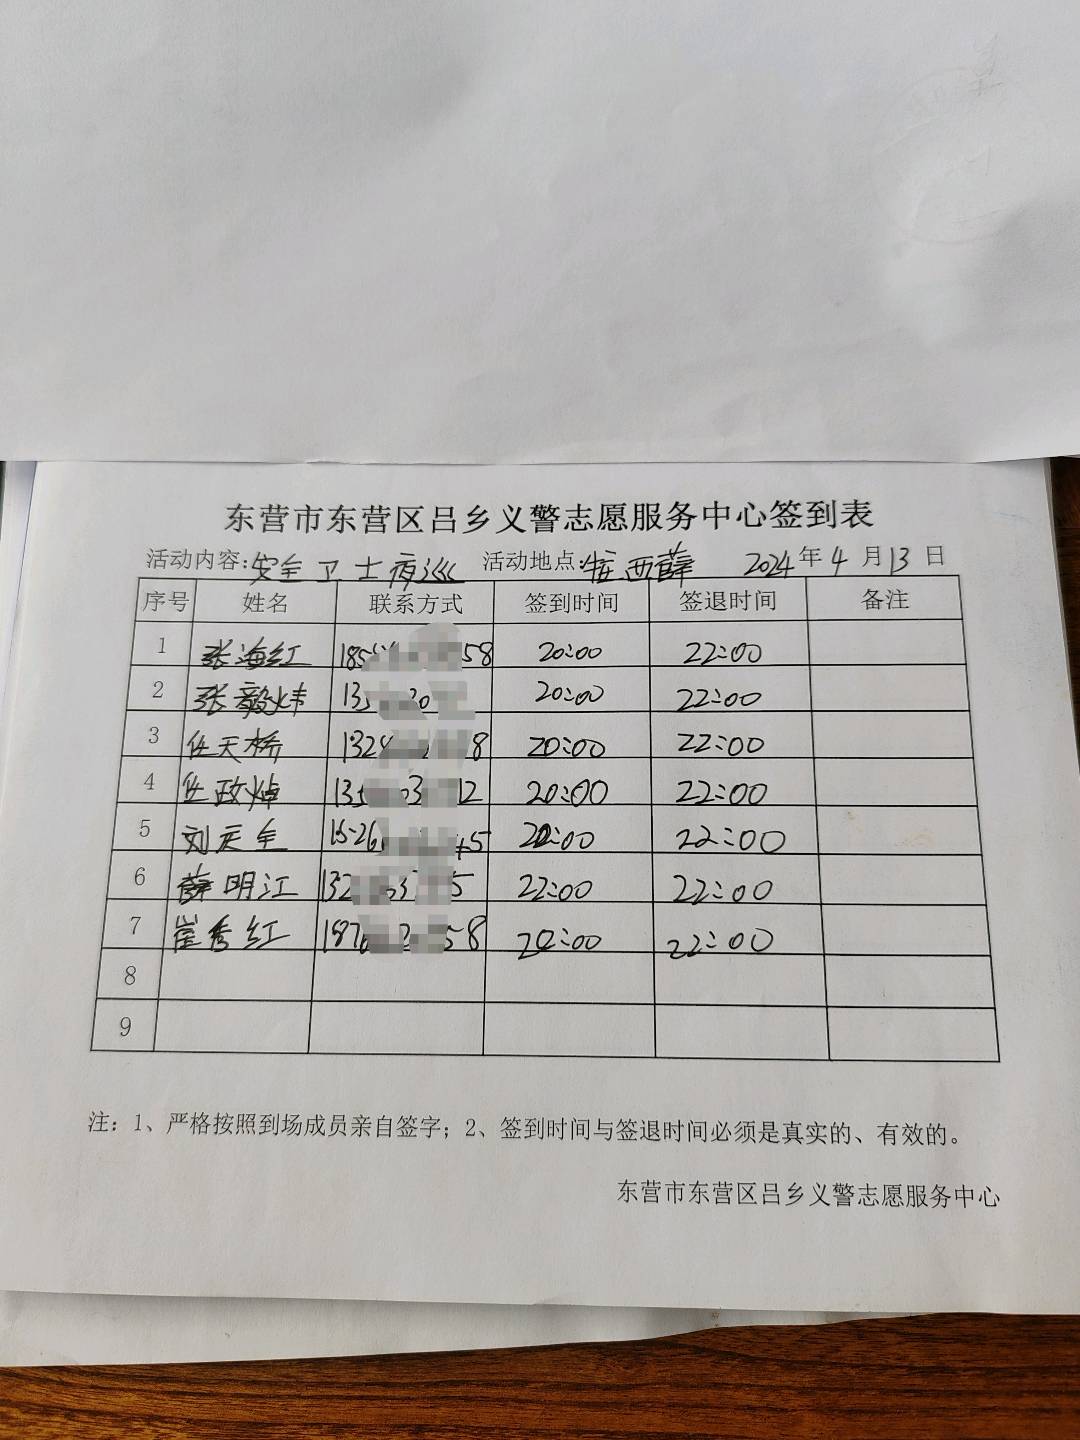 东营市东营区吕乡义警志愿服务中心签到表
活动内容:安全卫士夜巡 活动地点: 西薛 2024年4月13日
序号 姓名 联系方式 签到时间 签退时间 备注
1 张海红 185 58 20:00 22:00
2 张毅炜 13 30 20:00 22:00
3 任天桥 132 8 20:00 22:00
4 任政焯 13 03 12 20:00 22:00
5 刘天全 15-26 45 22:00
6 薛明江 132 5 22:00 22:00
7 崔秀红 187 58 22:00
8
9
注：1、严格按照到场成员亲自签字；2、签到时间与签退时间必须是真实的、有效的。
东营市东营区吕乡义警志愿服务中心